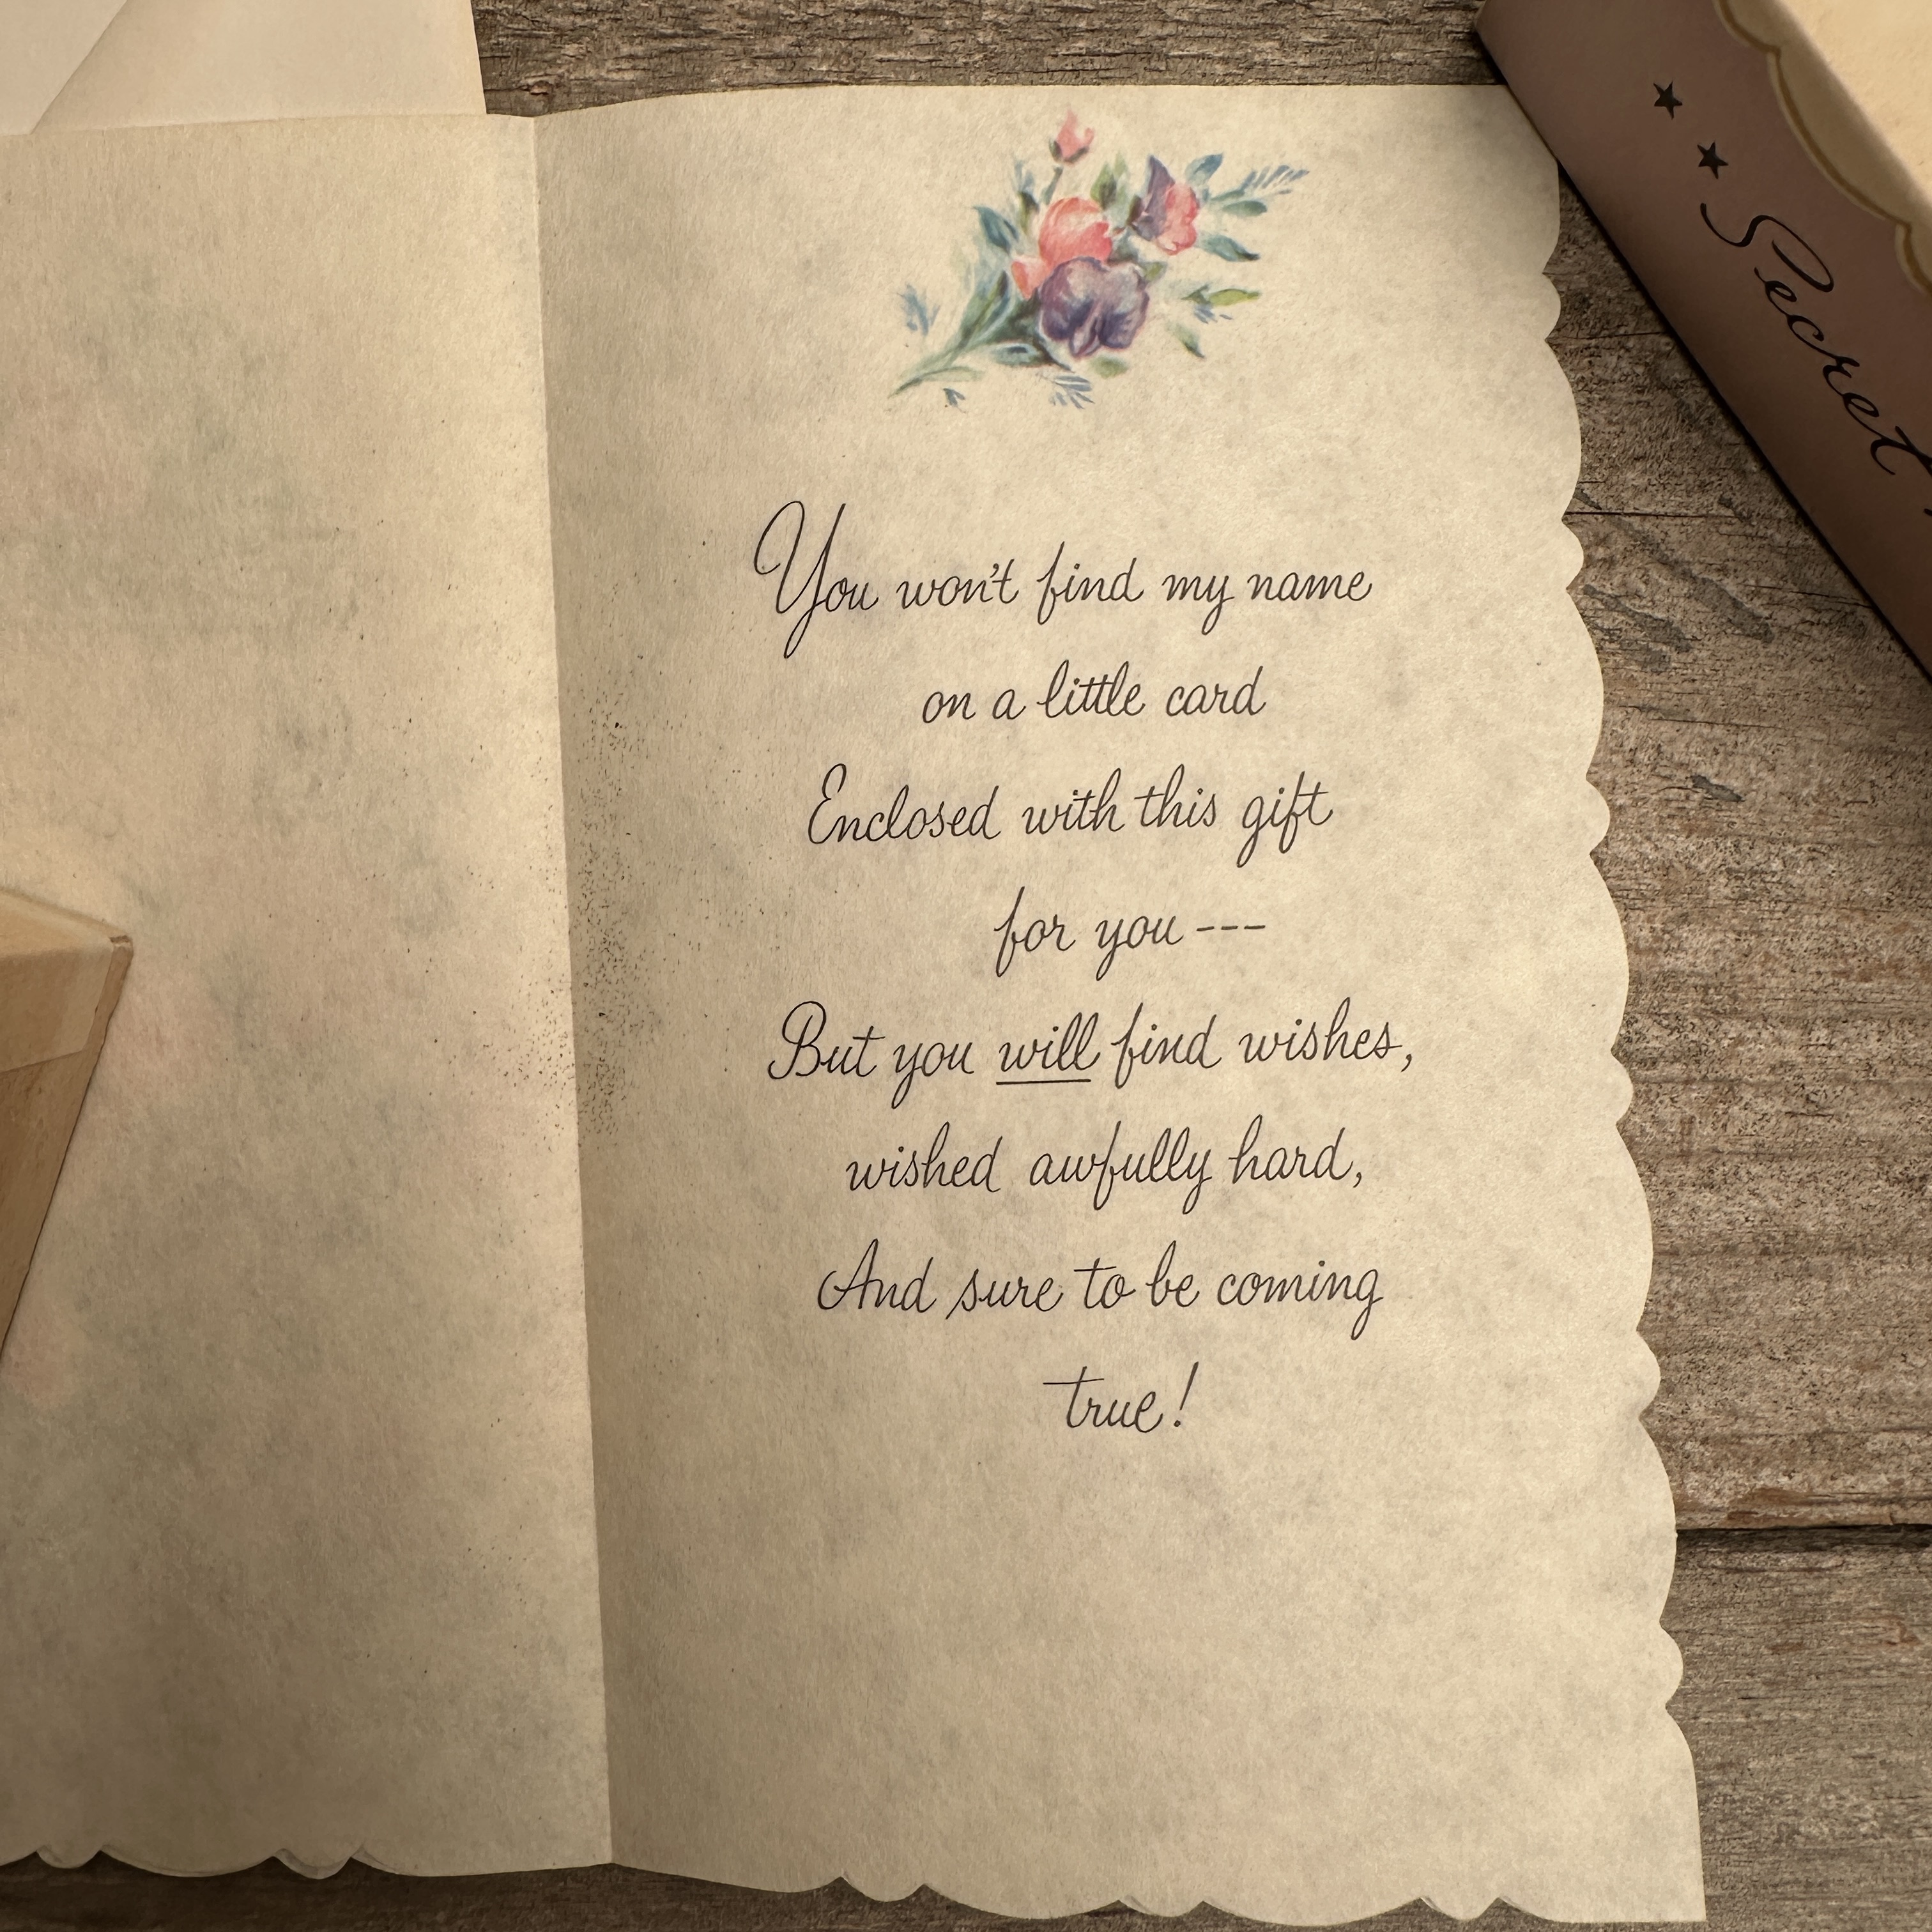 You won't find my name
on a little card
Enclosed with this gift
for you ---
But you will find wishes,
wished awfully hard,
And sure to be coming
true!
Secret